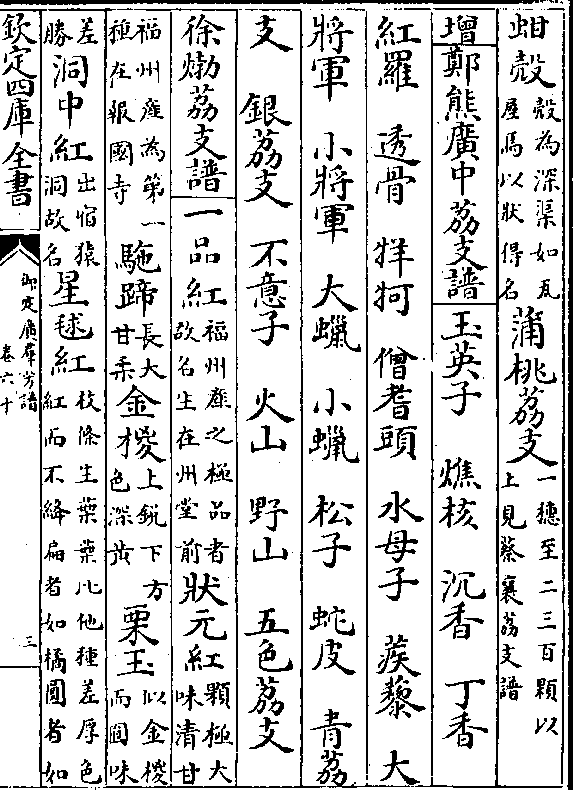 蚶殼殼為深渠如瓦屋焉以狀得名蒲桃荔支一穗至二三百顆以上見蔡襄荔支譜
增鄭熊廣中荔支譜玉英子 燋核 沉香 丁香
紅羅 透骨 牂牁 僧耆頭 水母子 蒺藜 大
將軍 小將軍 大蠟 小蠟 松子 蛇皮 青荔
支 銀荔支 不意子 火山 野山 五色荔支
徐𤊹荔支譜一品紅福州產之極品者故名生在州堂前狀元紅顆極大味清甘
福州產為第一種在報國寺駞蹄長大甘柔金㮨上銳下方色深黃栗玉似金㮨而圓味
差勝洞中紅出宿猿洞故名星毬紅枝條生葉葉比他種差厚色紅而不絳扁者如橘圓者如
欽定四庫全書
御定廣羣芳譜
卷六十
三